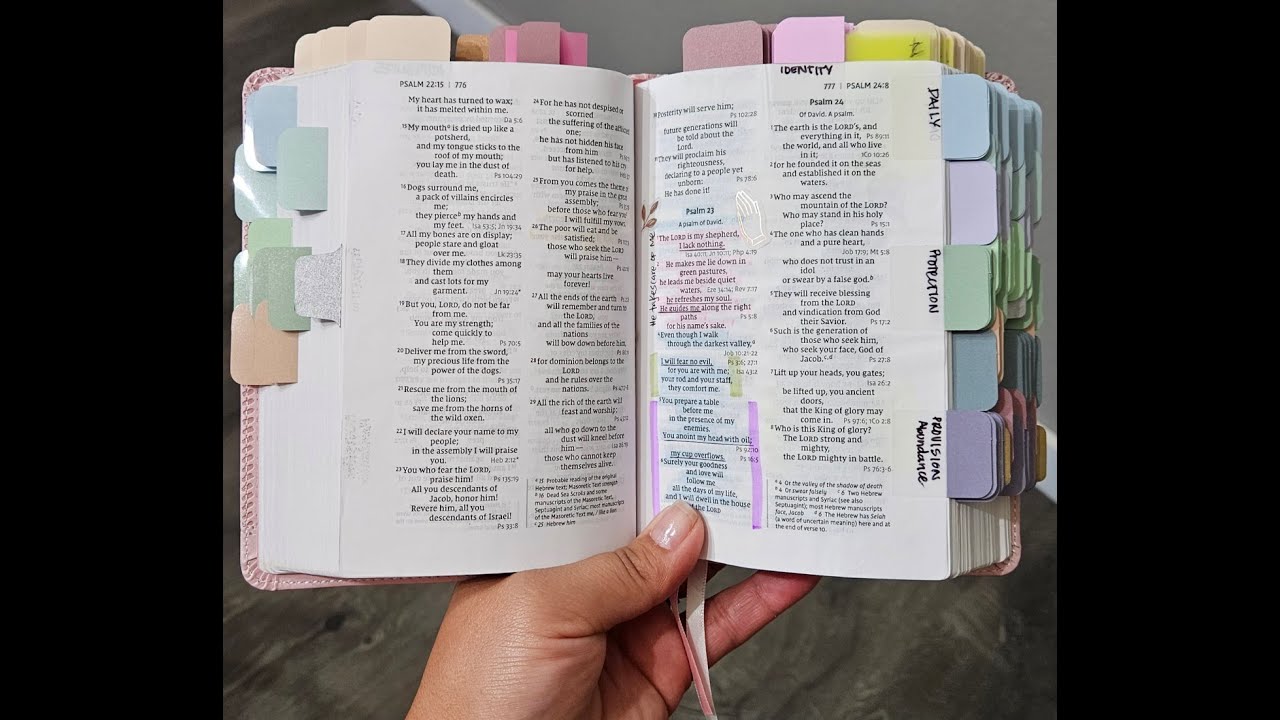 PSALM 22:15 | 776
My heart has turned to wax;
it has melted within me.
Da 5:6
15 My mouthᵃ is dried up like a
potsherd,
and my tongue sticks to the
roof of my mouth;
you lay me in the dust of
death.
Ps 104:29
16 Dogs surround me,
a pack of villains encircles
me;
they pierceᵇ my hands and
my feet. Isa 53:5; Jn 19:34
17 All my bones are on display;
people stare and gloat
over me. Lk 23:35
18 They divide my clothes among
them
and cast lots for my
garment. Jn 19:24*
19 But you, LORD, do not be far
from me.
You are my strength;
come quickly to
help me. Ps 70:5
20 Deliver me from the sword,
my precious life from the
power of the dogs.
Ps 35:17
21 Rescue me from the mouth of
the lions;
save me from the horns of
the wild oxen.
22 I will declare your name to my
people;
in the assembly I will praise
you. Heb 2:12*
23 You who fear the LORD,
praise him! Ps 135:19
All you descendants of
Jacob, honor him!
Revere him, all you
descendants of Israel!
Ps 33:8
24 For he has not despised or
scorned
the suffering of the afflicted
one;
he has not hidden his face
from him
but has listened to his cry
for help.
25 From you comes the theme of
my praise in the great
assembly;
before those who fear you
I will fulfill my vows.
26 The poor will eat and be
satisfied;
those who seek the LORD
will praise him—
may your hearts live
forever!
27 All the ends of the earth
will remember and turn to
the LORD,
and all the families of the
nations
will bow down before him,
28 for dominion belongs to the
LORD
and he rules over the
nations.
29 All the rich of the earth will
feast and worship;
all who go down to the
dust will kneel before
him—
those who cannot keep
themselves alive.
ᵃ 15 Probable reading of the original
Hebrew text; Masoretic Text strength
ᵇ 16 Dead Sea Scrolls and some
manuscripts of the Masoretic Text,
Septuagint and Syriac; most manuscripts
of the Masoretic Text me, / like a lion
ᶜ 25 Hebrew him
IDENTITY
777 | PSALM 24:8
30 Posterity will serve him;
Ps 102:28
future generations will
be told about the
Lord.
31 They will proclaim his
righteousness,
declaring to a people yet
unborn: Ps 78:6
He has done it!
Psalm 23
A psalm of David.
1 The LORD is my shepherd,
I lack nothing.
Isa 40:11; Jn 10:11; Php 4:19
2 He makes me lie down in
green pastures,
he leads me beside quiet
waters, Eze 34:14; Rev 7:17
3 he refreshes my soul.
He guides me along the right
paths Ps 5:8
for his name's sake.
4 Even though I walk
through the darkest valley,ᵃ
Job 10:21-22
I will fear no evil, Ps 3:6; 27:1
for you are with me; Isa 43:2
your rod and your staff,
they comfort me.
5 You prepare a table
before me
in the presence of my
enemies.
You anoint my head with oil;
Ps 92:10
my cup overflows. Ps 16:5
6 Surely your goodness
and love will
follow me
all the days of my life,
and I will dwell in the house
of the LORD
He takes care of me
Psalm 24
Of David. A psalm.
1 The earth is the LORD's, and
everything in it, Ps 89:11
the world, and all who live
in it; 1Co 10:26
2 for he founded it on the seas
and established it on the
waters.
3 Who may ascend the
mountain of the LORD?
Who may stand in his holy
place? Ps 15:1
4 The one who has clean hands
and a pure heart,
Job 17:9; Mt 5:8
who does not trust in an
idol
or swear by a false god.ᵇ
5 They will receive blessing
from the LORD
and vindication from God
their Savior. Ps 17:2
6 Such is the generation of
those who seek him,
who seek your face, God of
Jacob.ᶜ,ᵈ Ps 27:8
7 Lift up your heads, you gates;
Isa 26:2
be lifted up, you ancient
doors,
that the King of glory may
come in. Ps 97:6; 1Co 2:8
8 Who is this King of glory?
The LORD strong and
mighty,
the LORD mighty in battle.
Ps 76:3-6
ᵃ 4 Or the valley of the shadow of death
ᵇ 4 Or swear falsely ᶜ 6 Two Hebrew
manuscripts and Syriac (see also
Septuagint); most Hebrew manuscripts
face, Jacob ᵈ 6 The Hebrew has Selah
(a word of uncertain meaning) here and at
the end of verse 10.
DAILY
PROTECTION
PROVISION
Abundance